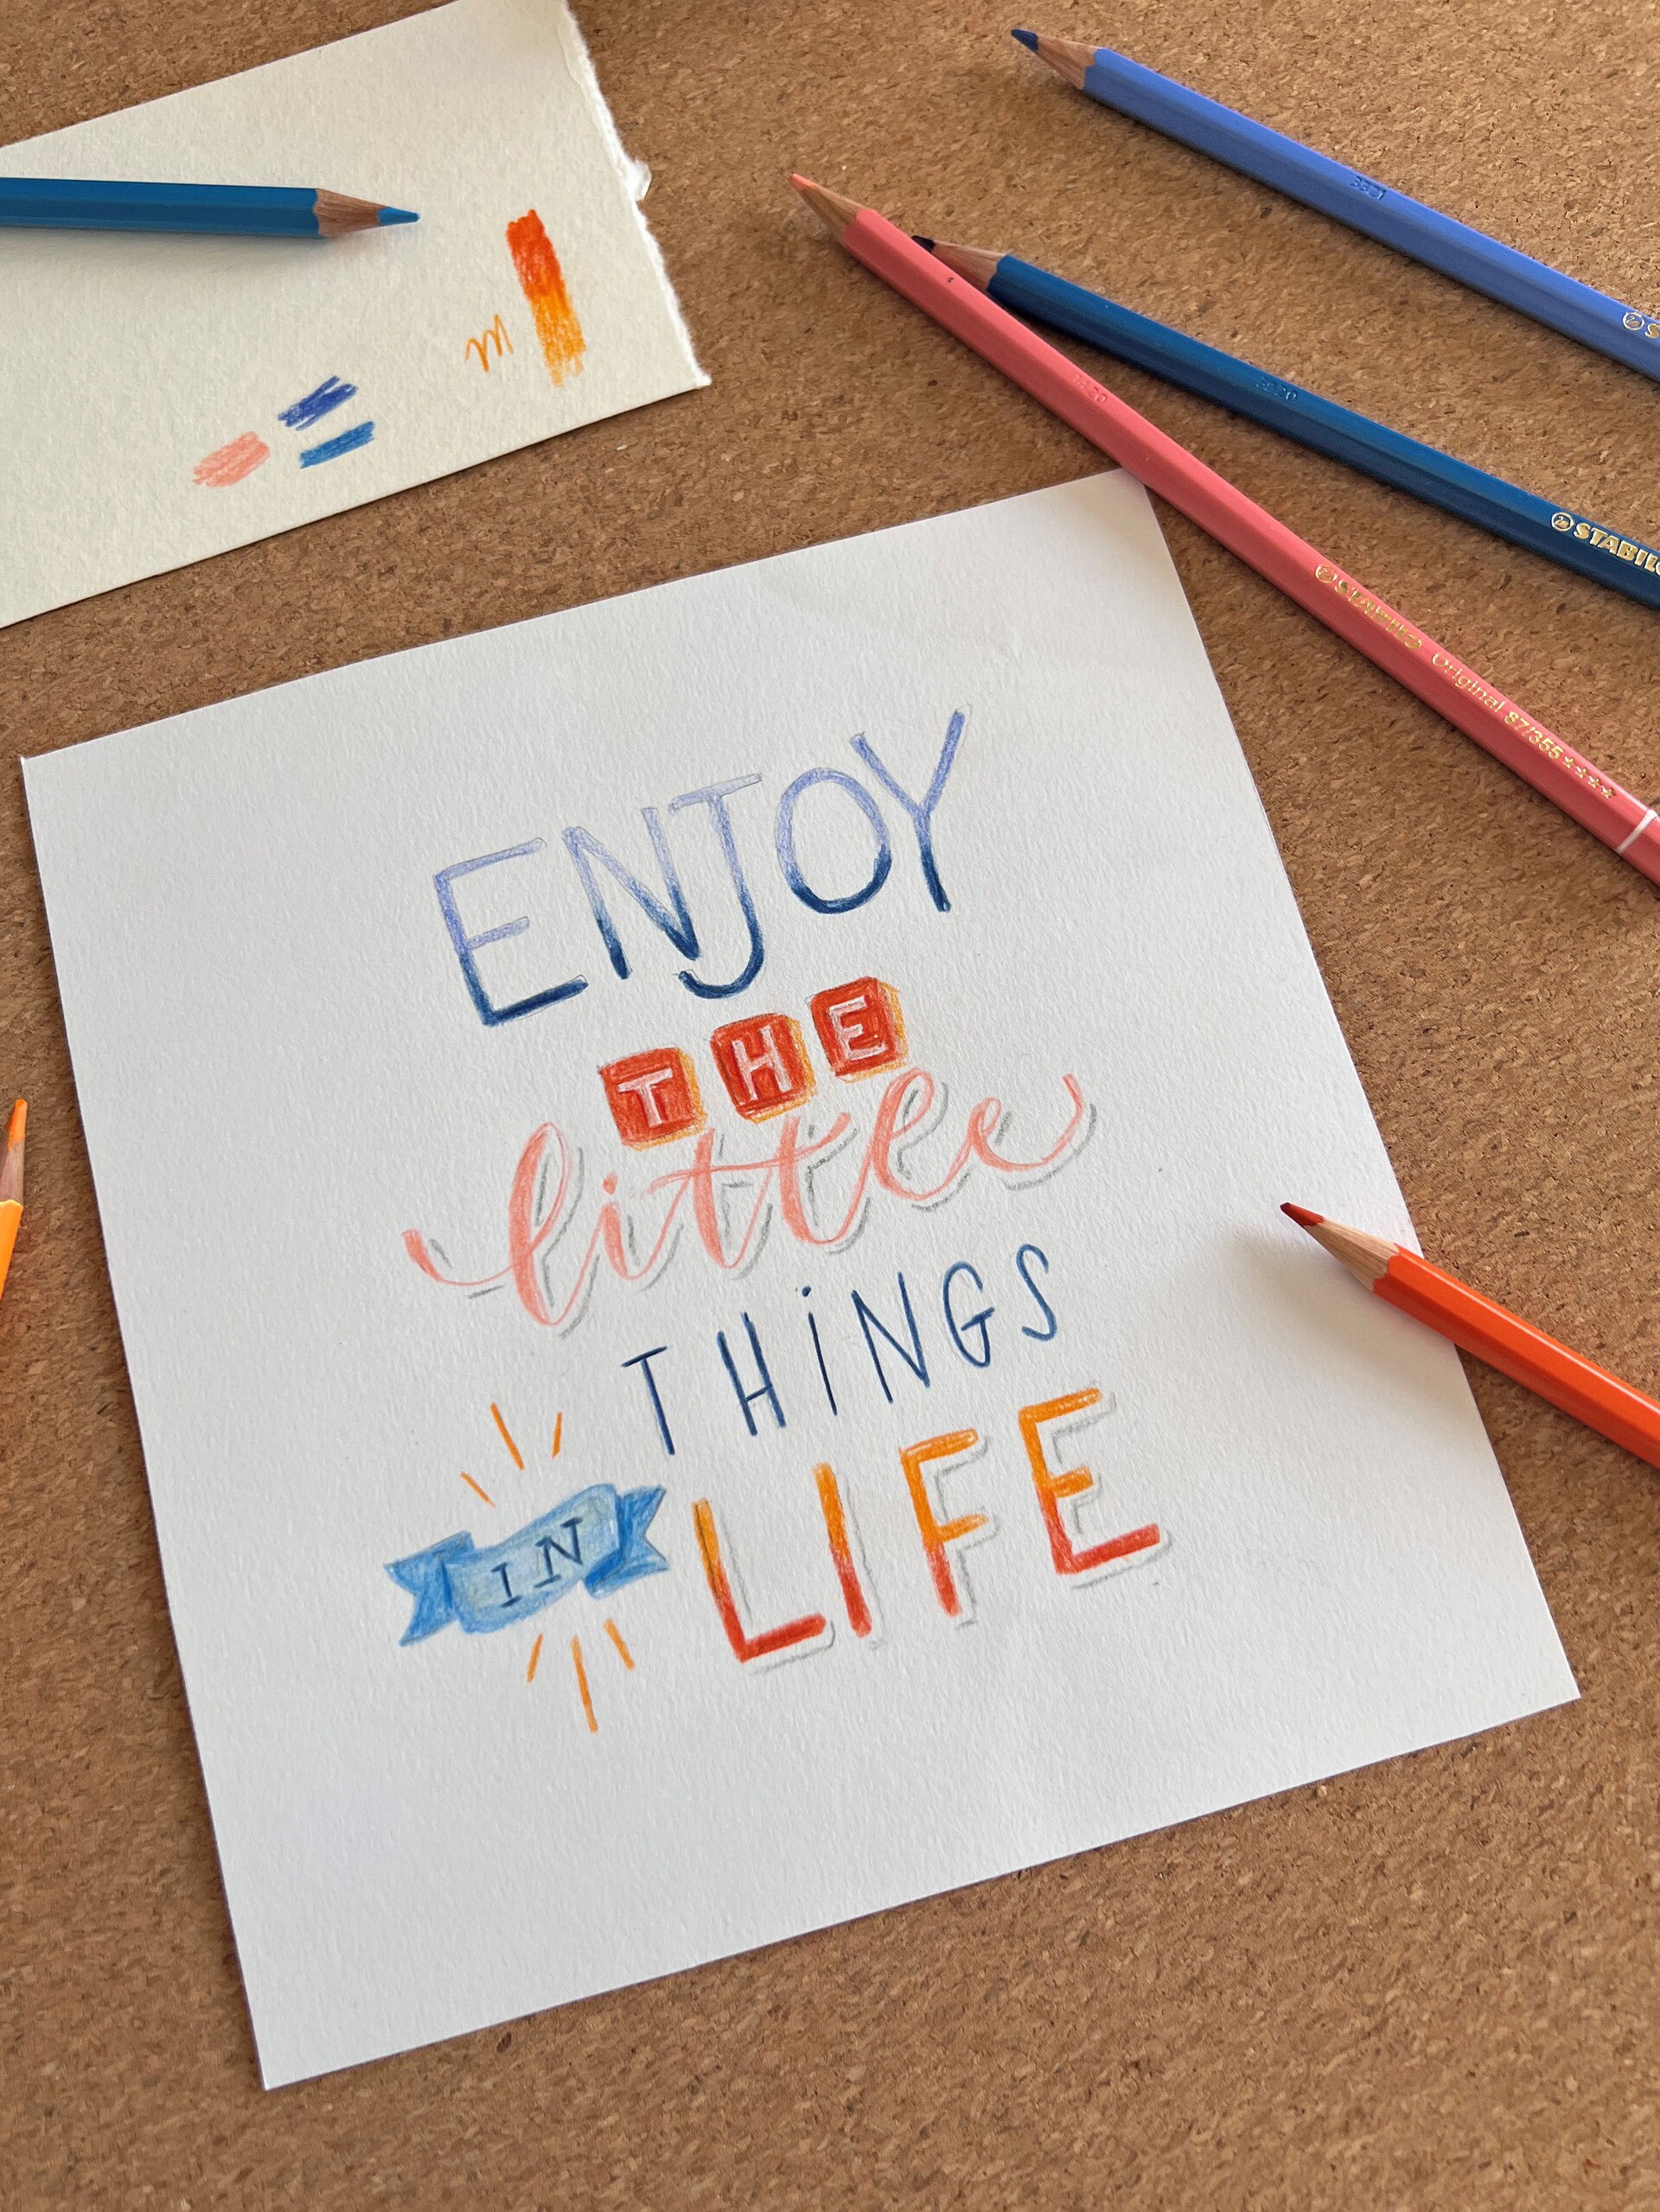 ENJOY
THE
little
THiNGS
IN LIFE
m
STABILO
STABILO Original 87/355 ★★★★